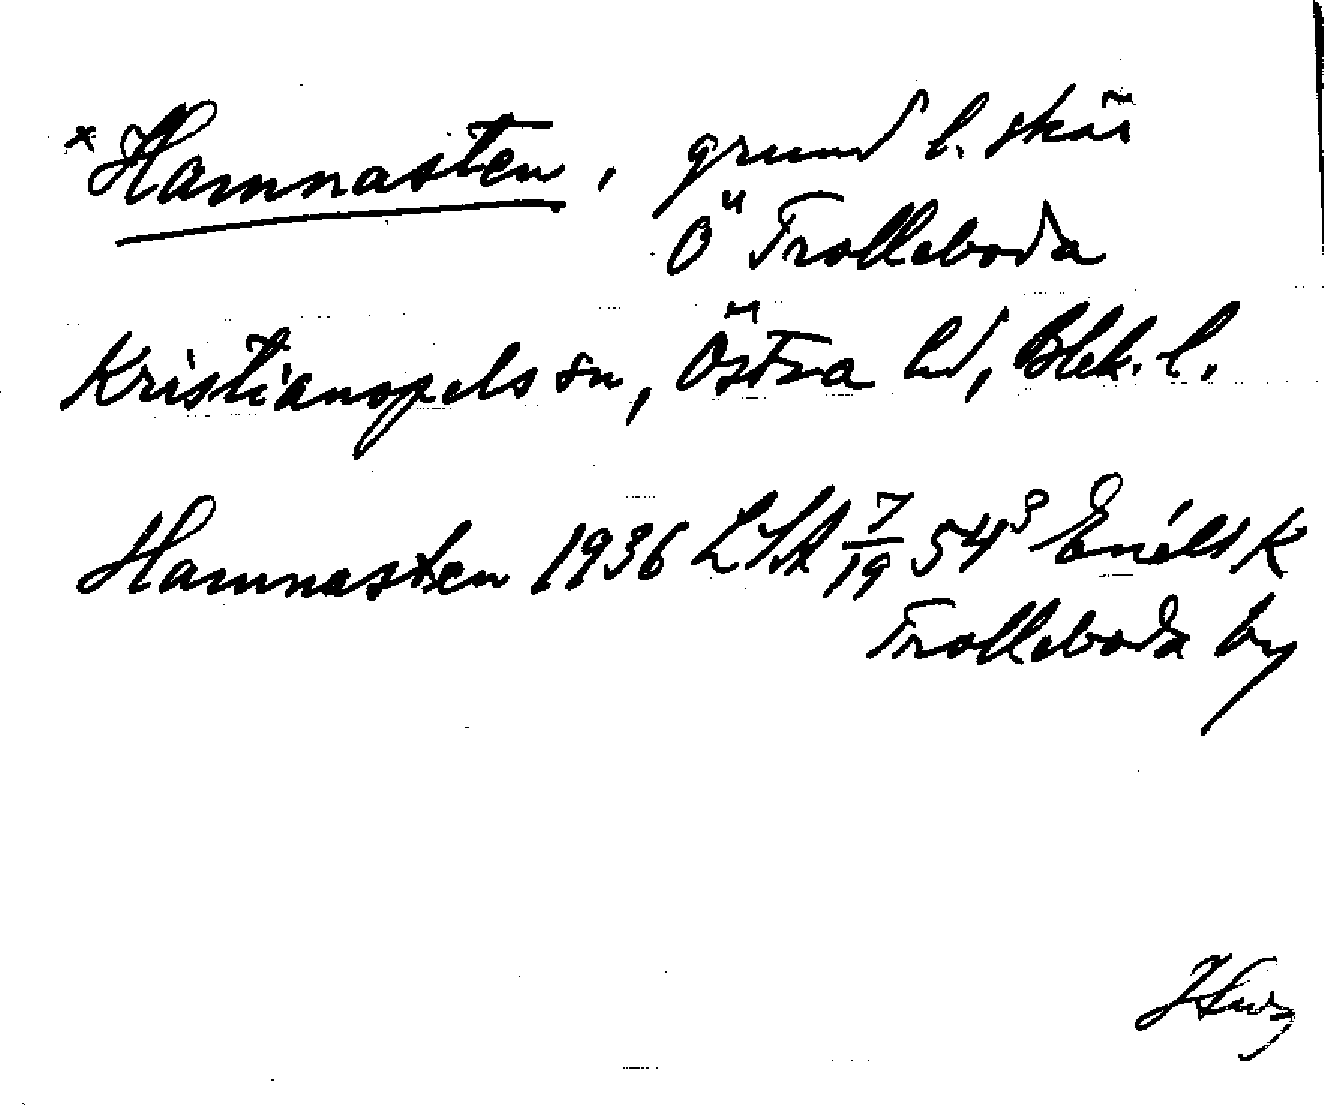 *Hamnasten, grund l. skär
Ö Trolleboda
Kristianopels sn, Östra hd, Blek. l.
Hamnasten 1936 LSA 7/19 54³ Enskt K
Trolleboda by